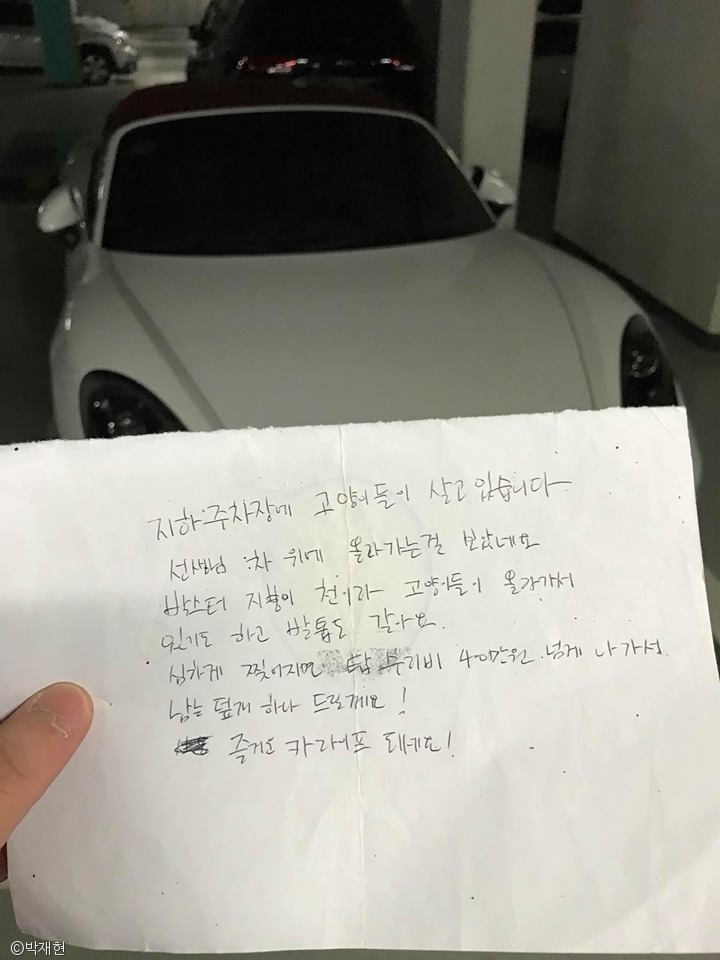 지하주차장에 고양이들이 살고 있습니다
선생님 차 위에 올라가는걸 보았네요
박스터 지붕이 천이라 고양이들이 올라가서
있기도 하고 발톱도 갈아요.
심하게 찢어지면 탑 수리비 400만원 넘게 나가서
남는 덮개 하나 드릴께요!
즐거운 카라이프 되세요!
©박재현